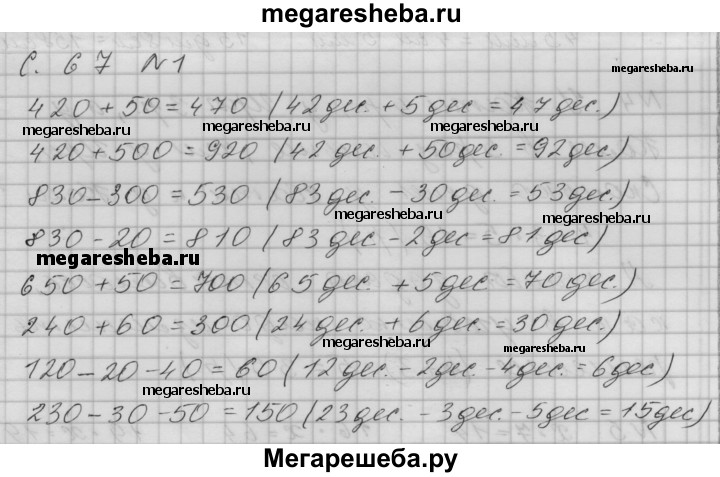 megaresheba.ru
С. 67 №1
megaresheba.ru
420+50=470 (42дес. + 5дес = 47дес.)
megaresheba.ru megaresheba.ru megaresheba.ru
420+500=920 (42 дес. + 50дес. = 92дес)
830-300=530 (83дес. - 30дес. = 53дес.)
megaresheba.ru megaresheba.ru
830-20=810 (83дес. - 2дес = 81дес)
megaresheba.ru
650+50=700 (65дес. + 5дес = 70дес.)
240+60=300 (24дес. + 6дес = 30дес.)
megaresheba.ru
120-20-40=60 (12дес. - 2дес - 4дес. = 6дес)
megaresheba.ru megaresheba.ru
230-30-50=150 (23дес. - 3дес. - 5дес = 15дес)
Мегарешеба.ру